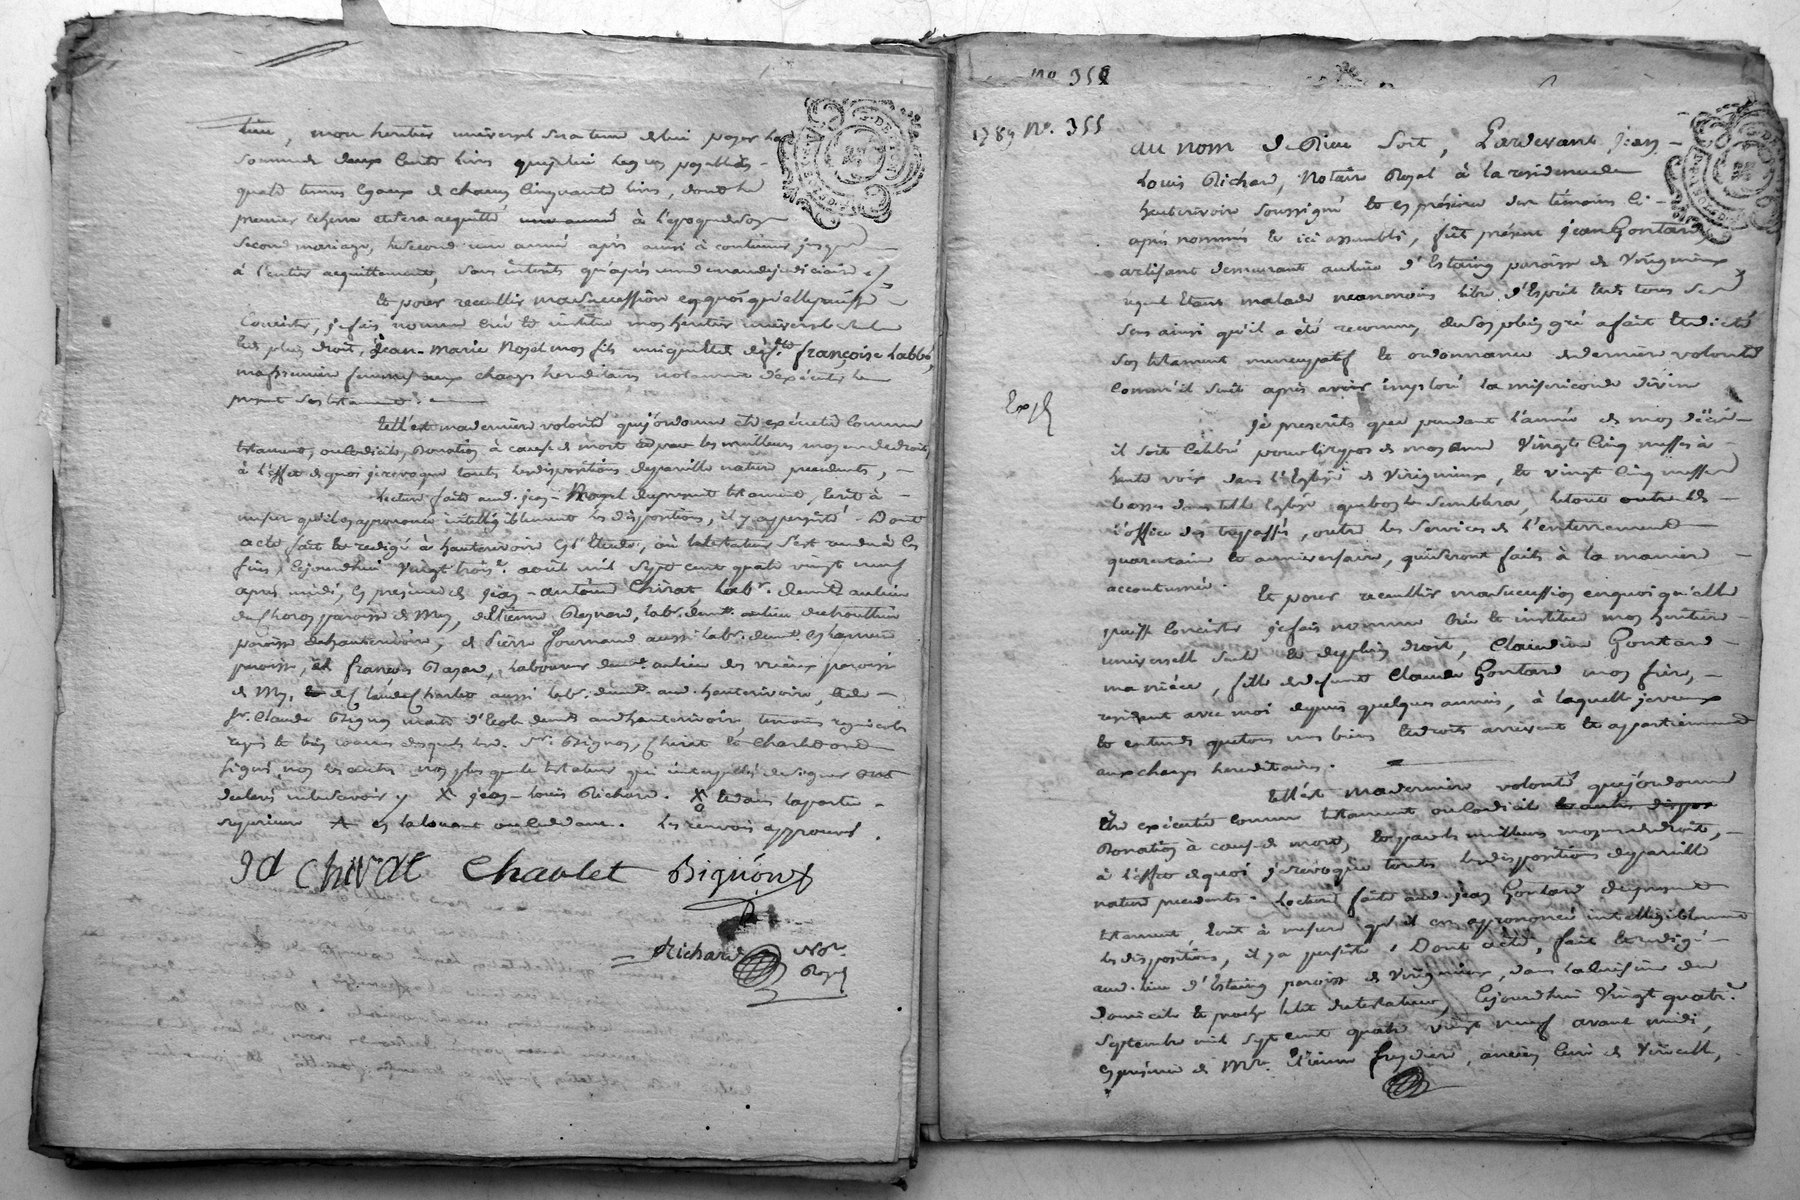 mon héritier universel sera tenu de lui payer la
somme de deux cents livres que je lui lègue payable en
quatre termes égaux de chacun cinquante livres, dont le
premier écherra et sera acquitté à l'époque de son
second mariage, le second un année après ainsi à continuer jusqu'
à l'entier acquittement, sans intérêts qu'après une demande judiciaire
Et pour recueillir ma succession en quoi qu'elle puisse
Concister, je fais nomme crée et institue mon héritier universel seul
et de plein droit, Jean-Marie Noyel mon fils françoise Labbé,
ma première femme aux charges héréditaires d'exécuter le
présent testament
Tell'est ma dernière volonté que j'ordonne être exécutée comme
testament, ou codicile, donation à cause de mort et par les meilleurs moyens de droit,
à l'effet de quoi je révoque toutes les dispositions de pareille nature précédentes,
Lecture faite aud. jean Noyel du présent testament, écrit à
mesure qu'il en a prononcé intelligiblement les dispositions, il y a persisté. Dont
acte fait et rédigé à hauterivoire en l'Etude, où le testateur s'est rendu à ces
fins, cejourdhui Vingt trois août mil sept cent quatre vingt neuf
après midi, en présence de jean-antoine Chirat labr. demt. au lieu
paroisse de Mey, d'Etienne labr. demt. au lieu
paroisse de hauterivoire, de Pierre aussi labr. demt.
paroisse, de françois laboureur demt. au lieu des vieux paroisse
de Mey, de Claude Charlet aussi labr. demt. aud. hauterivoire, et de
Sr. Claude Bignon maitre d'Ecole demt. aud hauterivoire, temoins
requis et desquels led. Sr. Bignon, Chirat et Charlet ont
signé, non les autres non plus que le testateur qui interpellés de signer ont
déclaré ne le savoir. X jean-louis Richard. X
supérieure Les renvois approuvés.
Chirat Charlet Bignon
Richard Nore.
Royal
No. 355
1789 No. 355
au nom de Dieu soit, Pardevant Jean-
Louis Richard, Notaire Royal à la résidence de
hauterivoir soussigné et en présence des témoins ci-
après nommés et ici assemblés, fût présent jean Gontard,
artisant demeurant au lieu d'Estaing paroisse de Virigneux
lequel étant malade néanmoins libre d'Esprit et de tous ses
sens ainsi qu'il a été reconnu, de son plein gré a fait et dicté
son testament nuncupatif et ordonnance de dernière volonté
comm'il suit après avoir imploré la miséricorde divine
Je prescrits que pendant l'année de mon décès
il soit célébré pour le repos de mon âme Vingt cinq messes à
haute voix dans l'Eglise de Virigneux, et vingt cinq messes
basses dans telle Eglise que bon semblera, le tout outre
l'office des trépassés, outre les services de l'enterrement
quarantaine et anniversaire, qui seront faits à la manière
accoutumée.
Et pour recueillir ma succession en quoi qu'elle
puisse concister je fais nomme crée et institue mon héritière
universelle seule et de plein droit, Claudine Gontard
ma nièce, fille de défunt Claude Gontard mon frère,
résident avec moi depuis quelques années, à laquelle je veux
et entends que tous mes biens et droits arrivent et appartiennent
aux charges héréditaires.
Tell'est ma dernière volonté que j'ordonne
être exécutée comme testament ou codicile
Donation à cause de mort, et par les meilleurs moyens de droit,
à l'effet de quoi je révoque toutes les dispositions de pareille
nature précédentes. Lecture faite aud. jean Gontard du présent
testament écrit à mesure qu'il en a prononcé intelligiblement
les dispositions, il y a persisté. Dont acte, fait et rédigé
aud. lieu d'Estaing paroisse de Virigneux, dans la cuisine du
domicile et proche le lit du testateur, cejourdhui Vingt quatre
septembre mil sept cent quatre vingt neuf avant midi,
en présence de Mre. Etienne ancien curé de Viricelle,